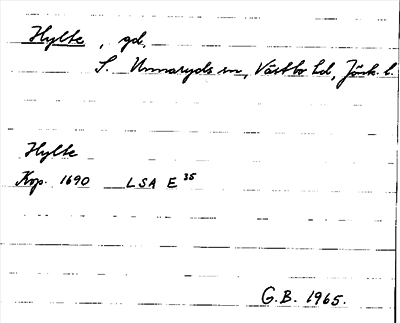 Hylte, gd,
S. Unnaryds sn, Västbo hd, Jönk. l.
Hylte
Kop. 1690 LSA E 35
G.B. 1965.